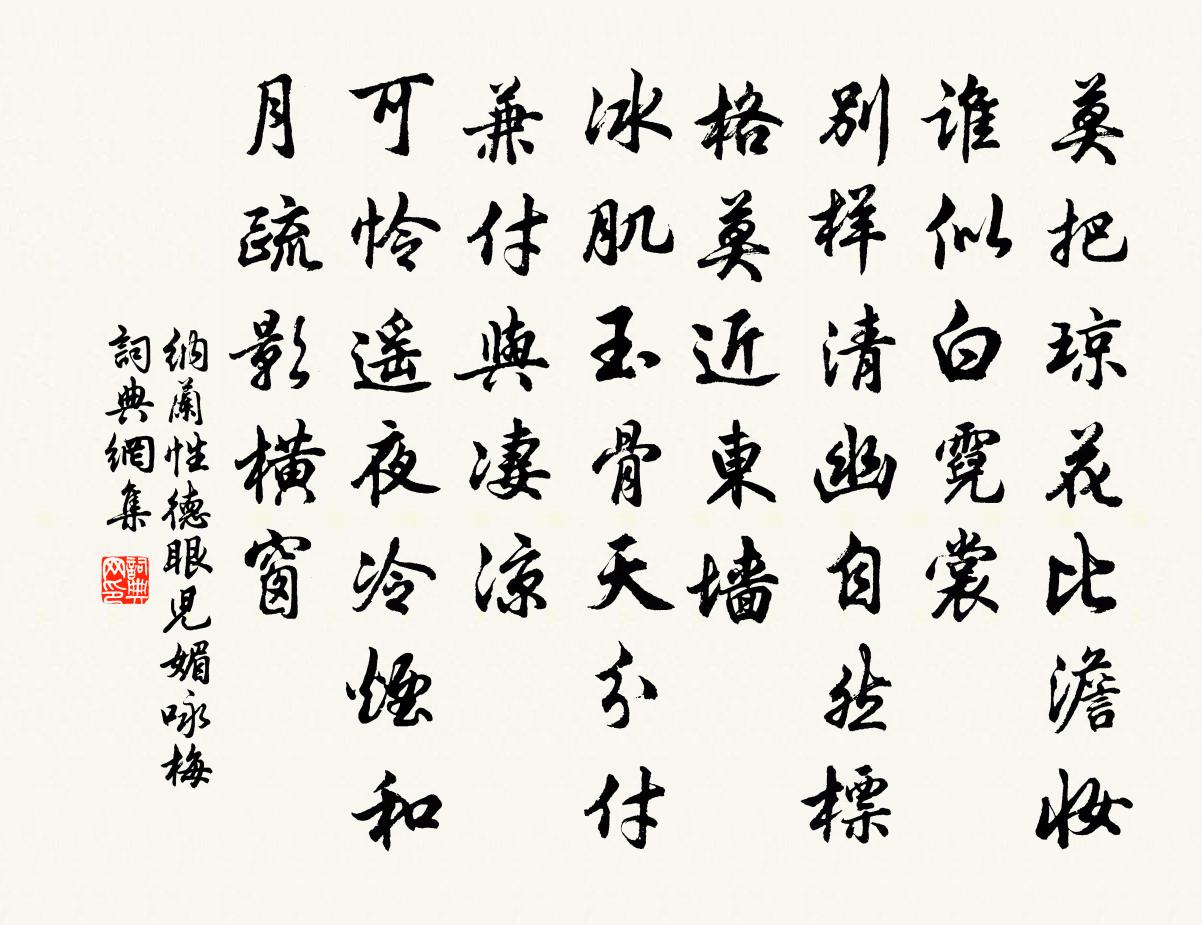 莫把琼花比澹妆
谁似白霓裳
别样清幽自然標
格莫近東墙
冰肌玉骨天分付
兼付與凄凉
可怜遥夜冷煙和
月疏影横窗
纳蘭性德眼兒媚咏梅
詞典網集
詞典网印